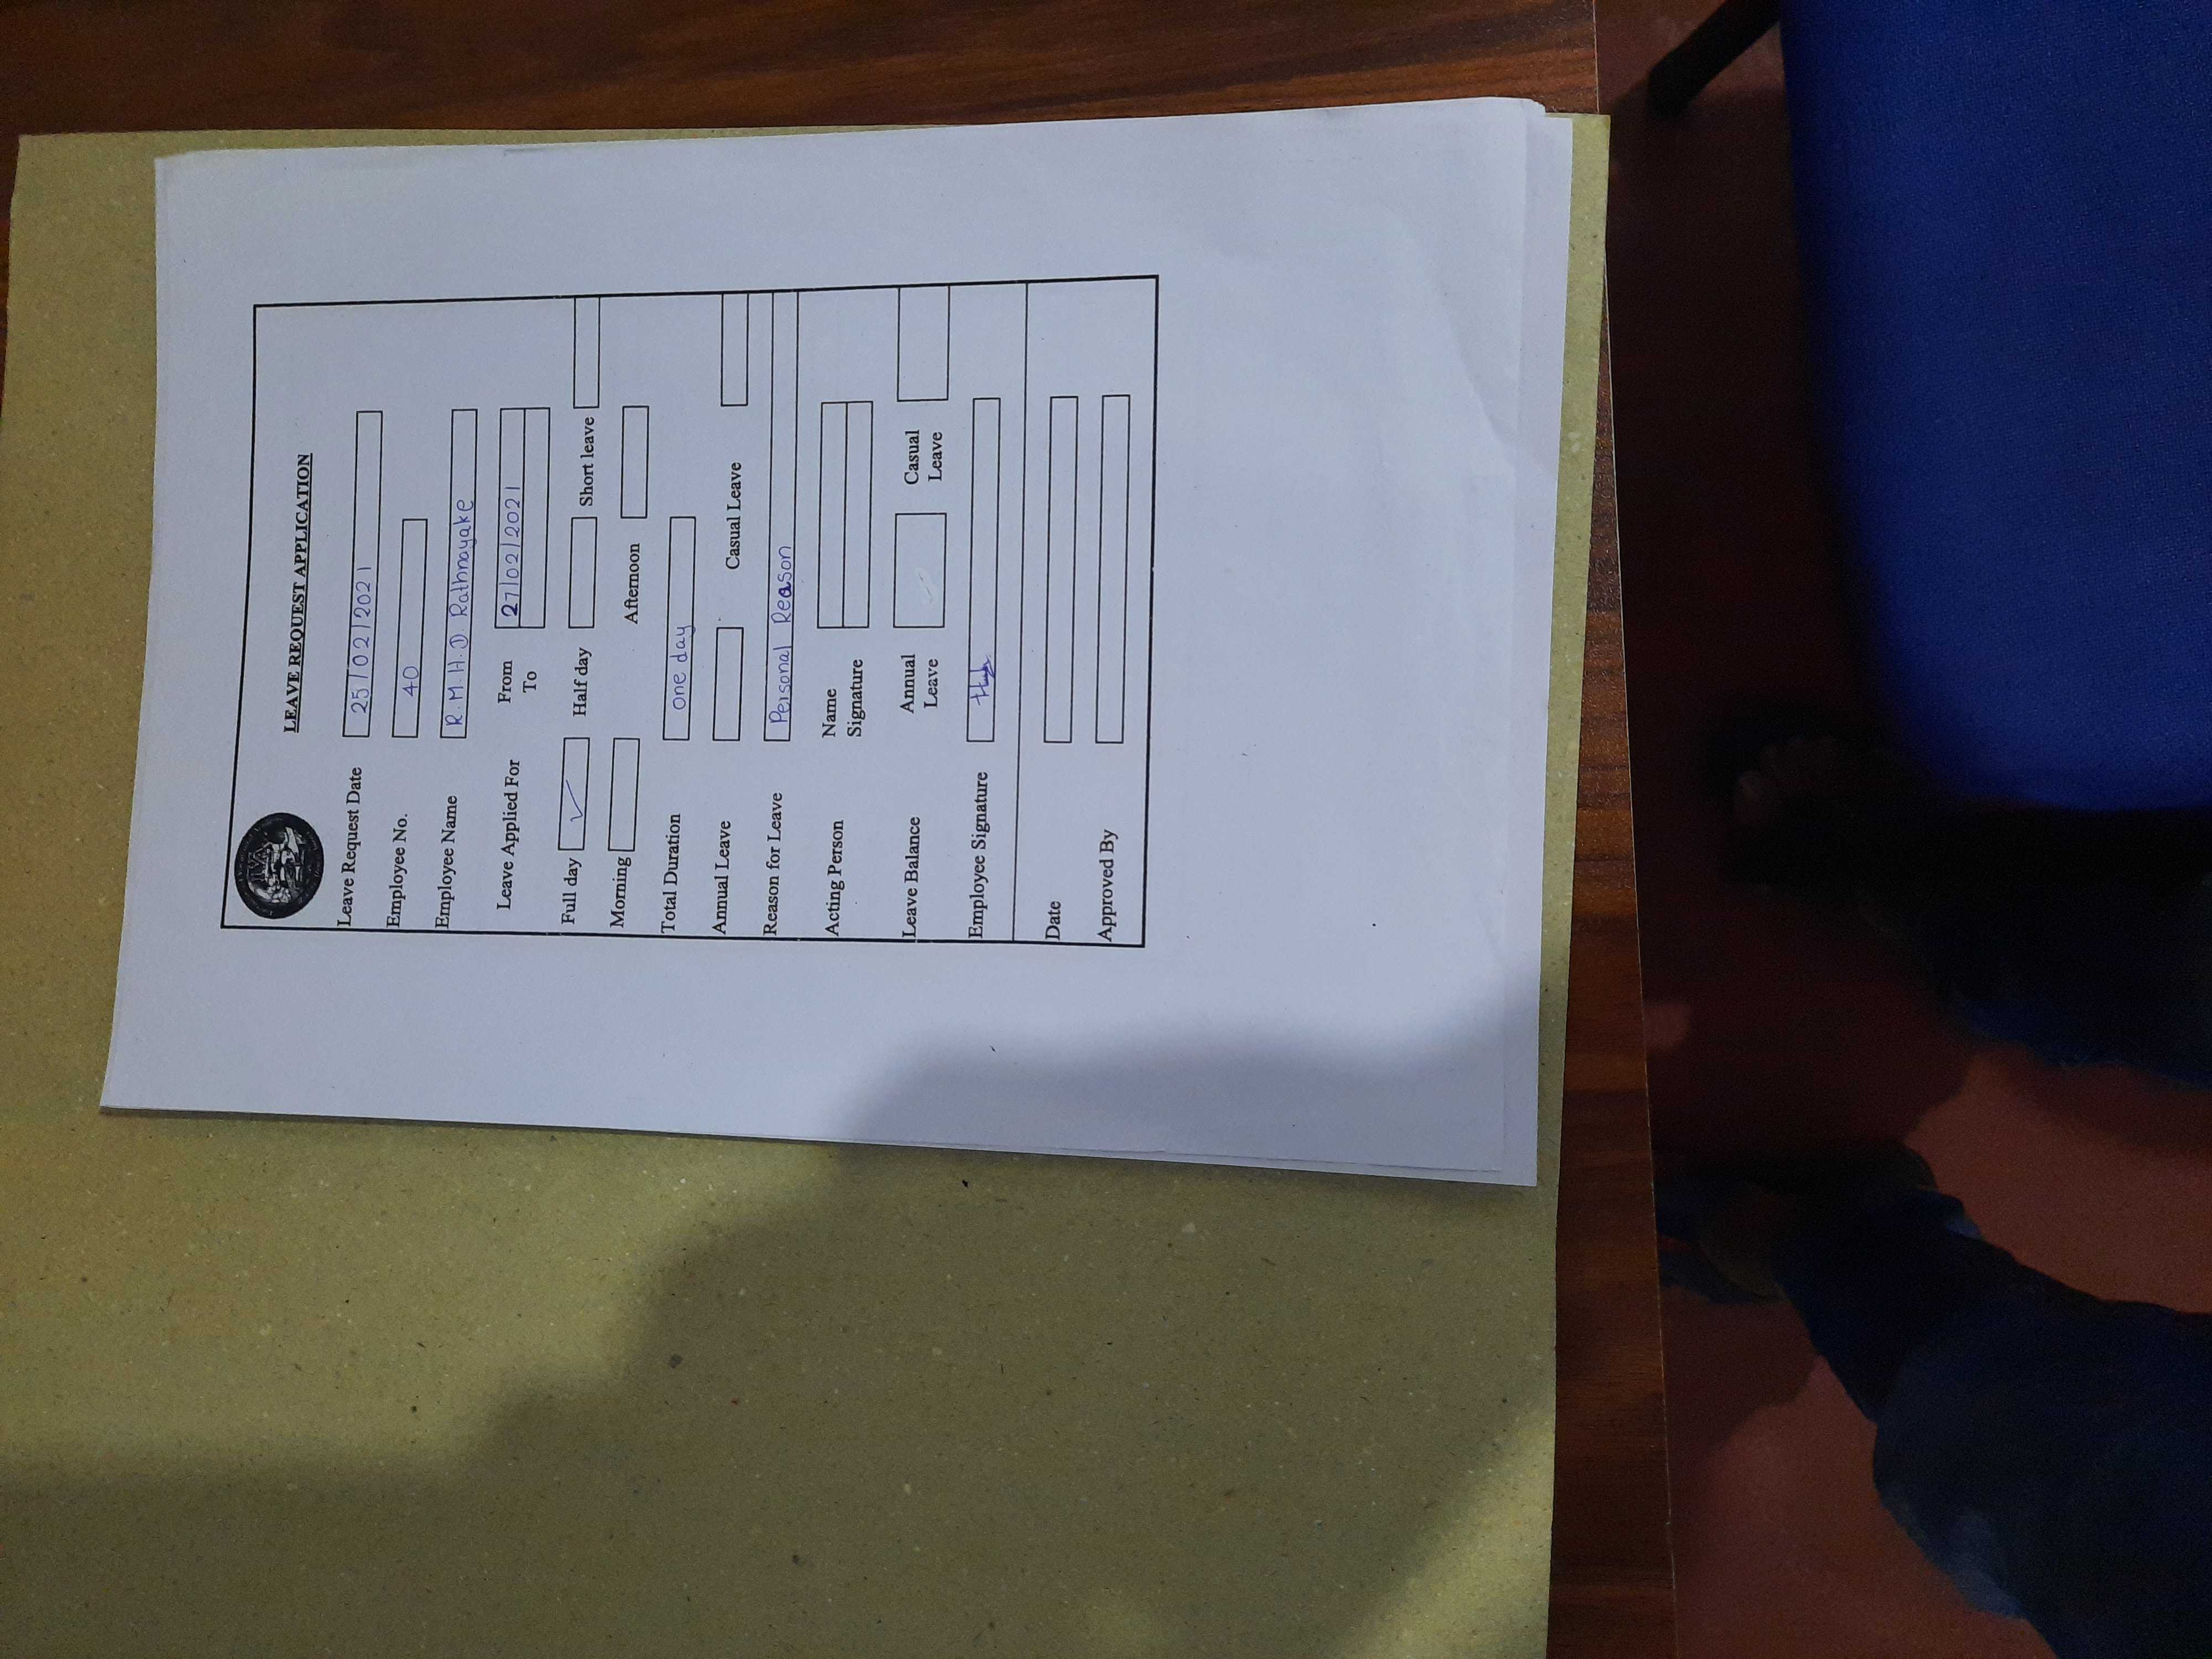 LEAVE REQUEST APPLICATION
Leave Request Date 25/02/2021
Employee No. 40
Employee Name R.M.H.D Rathnayake
Leave Applied For From 27/02/2021
To
Full day ✓ Half day Short leave
Morning Afternoon
Total Duration one day
Annual Leave Casual Leave
Reason for Leave Personal Reason
Acting Person Name
Signature
Leave Balance Annual Leave Casual Leave
Employee Signature
Date
Approved By